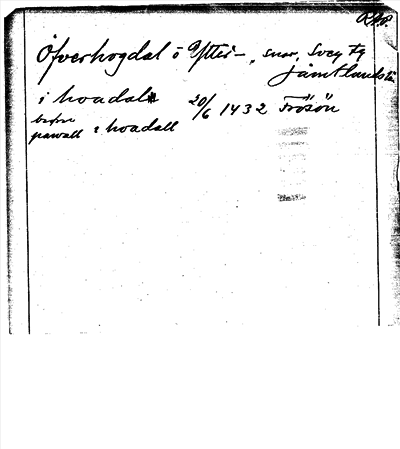 Öfverhogdal o Ytter-, snar, Sveg tg
Jämtlands
i hoadal 20/6 1432 Frösön
pawall i hoadall